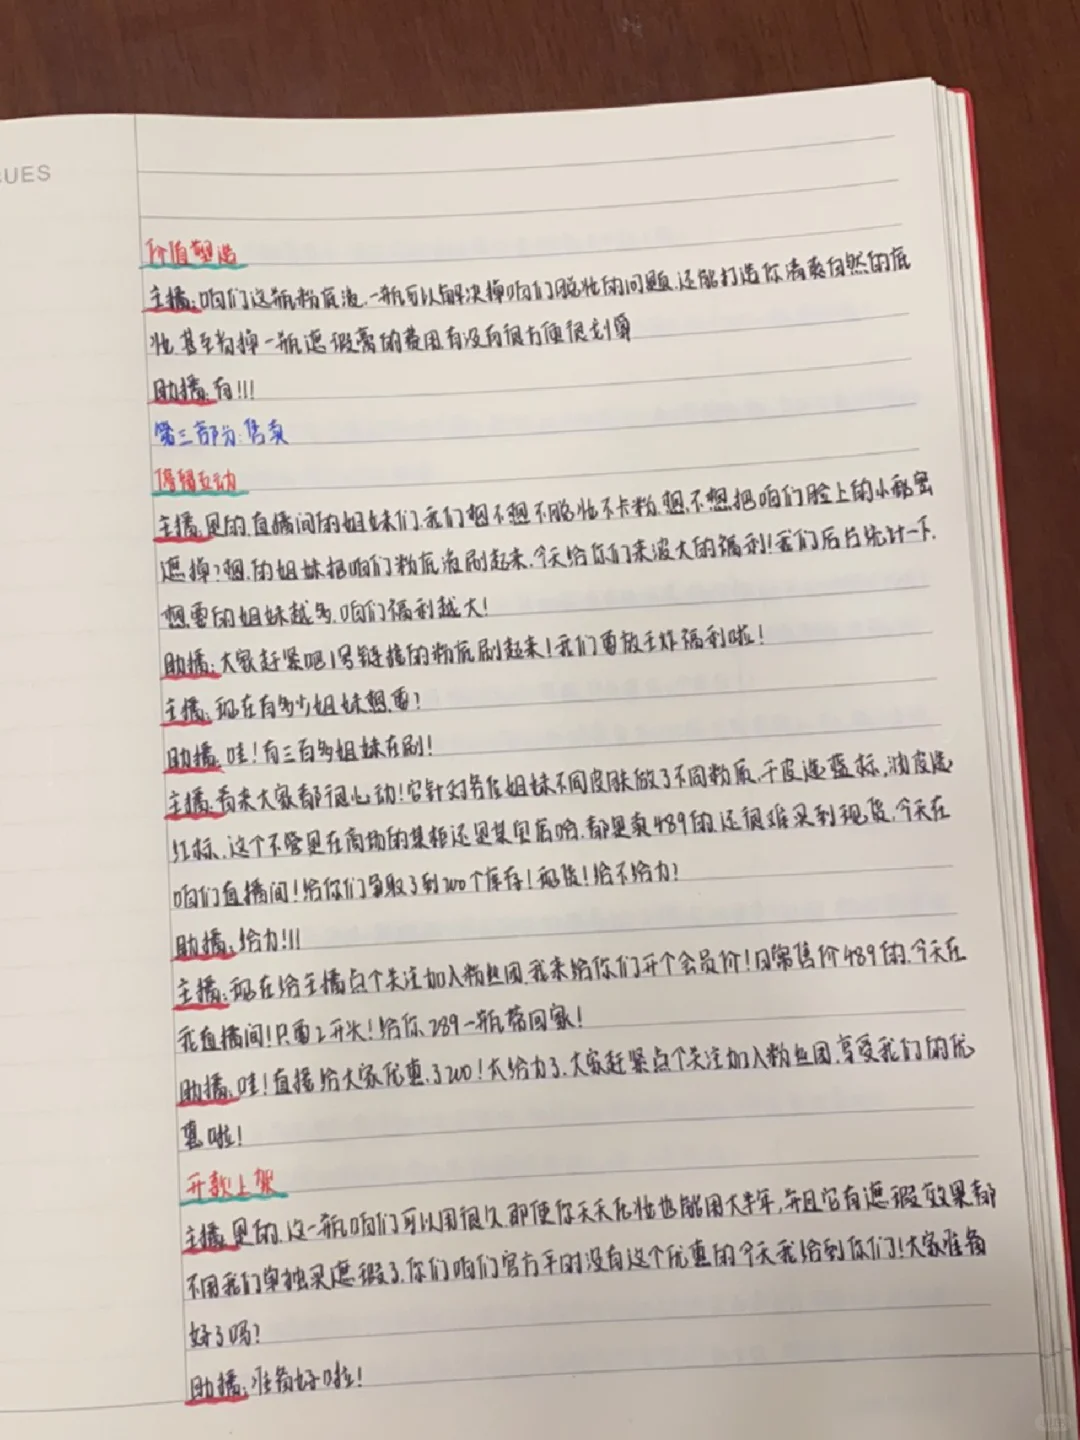 CUES
价值塑造
主播:咱们这瓶粉底液.一瓶可以解决掉咱们脱妆的问题.还能打造你清爽自然的底
妆.甚至省掉一瓶遮瑕膏的费用有没有很方便很划算
助播:有!!!
第三部分:售卖
停留互动
主播:是的.直播间的姐妹们.我们想不想不脱妆不卡粉.想不想把咱们脸上的小秘密
遮掉?想.的姐妹把咱们粉底液刷起来.今天给你们来波大的福利!我们后台统计一下.
想要的姐妹越多.咱们福利越大!
助播:大家赶紧吧1号链接的粉底刷起来!我们要放王炸福利啦!
主播:现在有多少姐妹想要?
助播:哇!有三百多姐妹在刷!
主播:看来大家都很心动!它针对各位姐妹不同皮肤做了不同粉质.干皮选蓝标.油皮选
红标.这个不管是在商场的某柜还是某宝店哈.都是卖489的.还很难买到现货.今天在
咱们直播间!给你们争取了到200个库存!现货!给不给力?
助播:给力!!!
主播:现在给主播点个关注加入粉丝团.我来给你们开个会员价!日常售价489的.今天在
我直播间!只要2开头!给你.289一瓶带回家!
助播:哇!直接给大家优惠.了200!太给力了.大家赶紧点个关注加入粉丝团.享受我们的优
惠啦!
开款上架
主播:是的.这一瓶咱们可以用很久.即便你天天化妆也能用大半年.并且它有遮瑕效果都
不用我们单独买遮瑕了.你们咱们官方平时没有这个优惠的今天我给到你们!大家准备
好了吗?
助播:准备好啦!